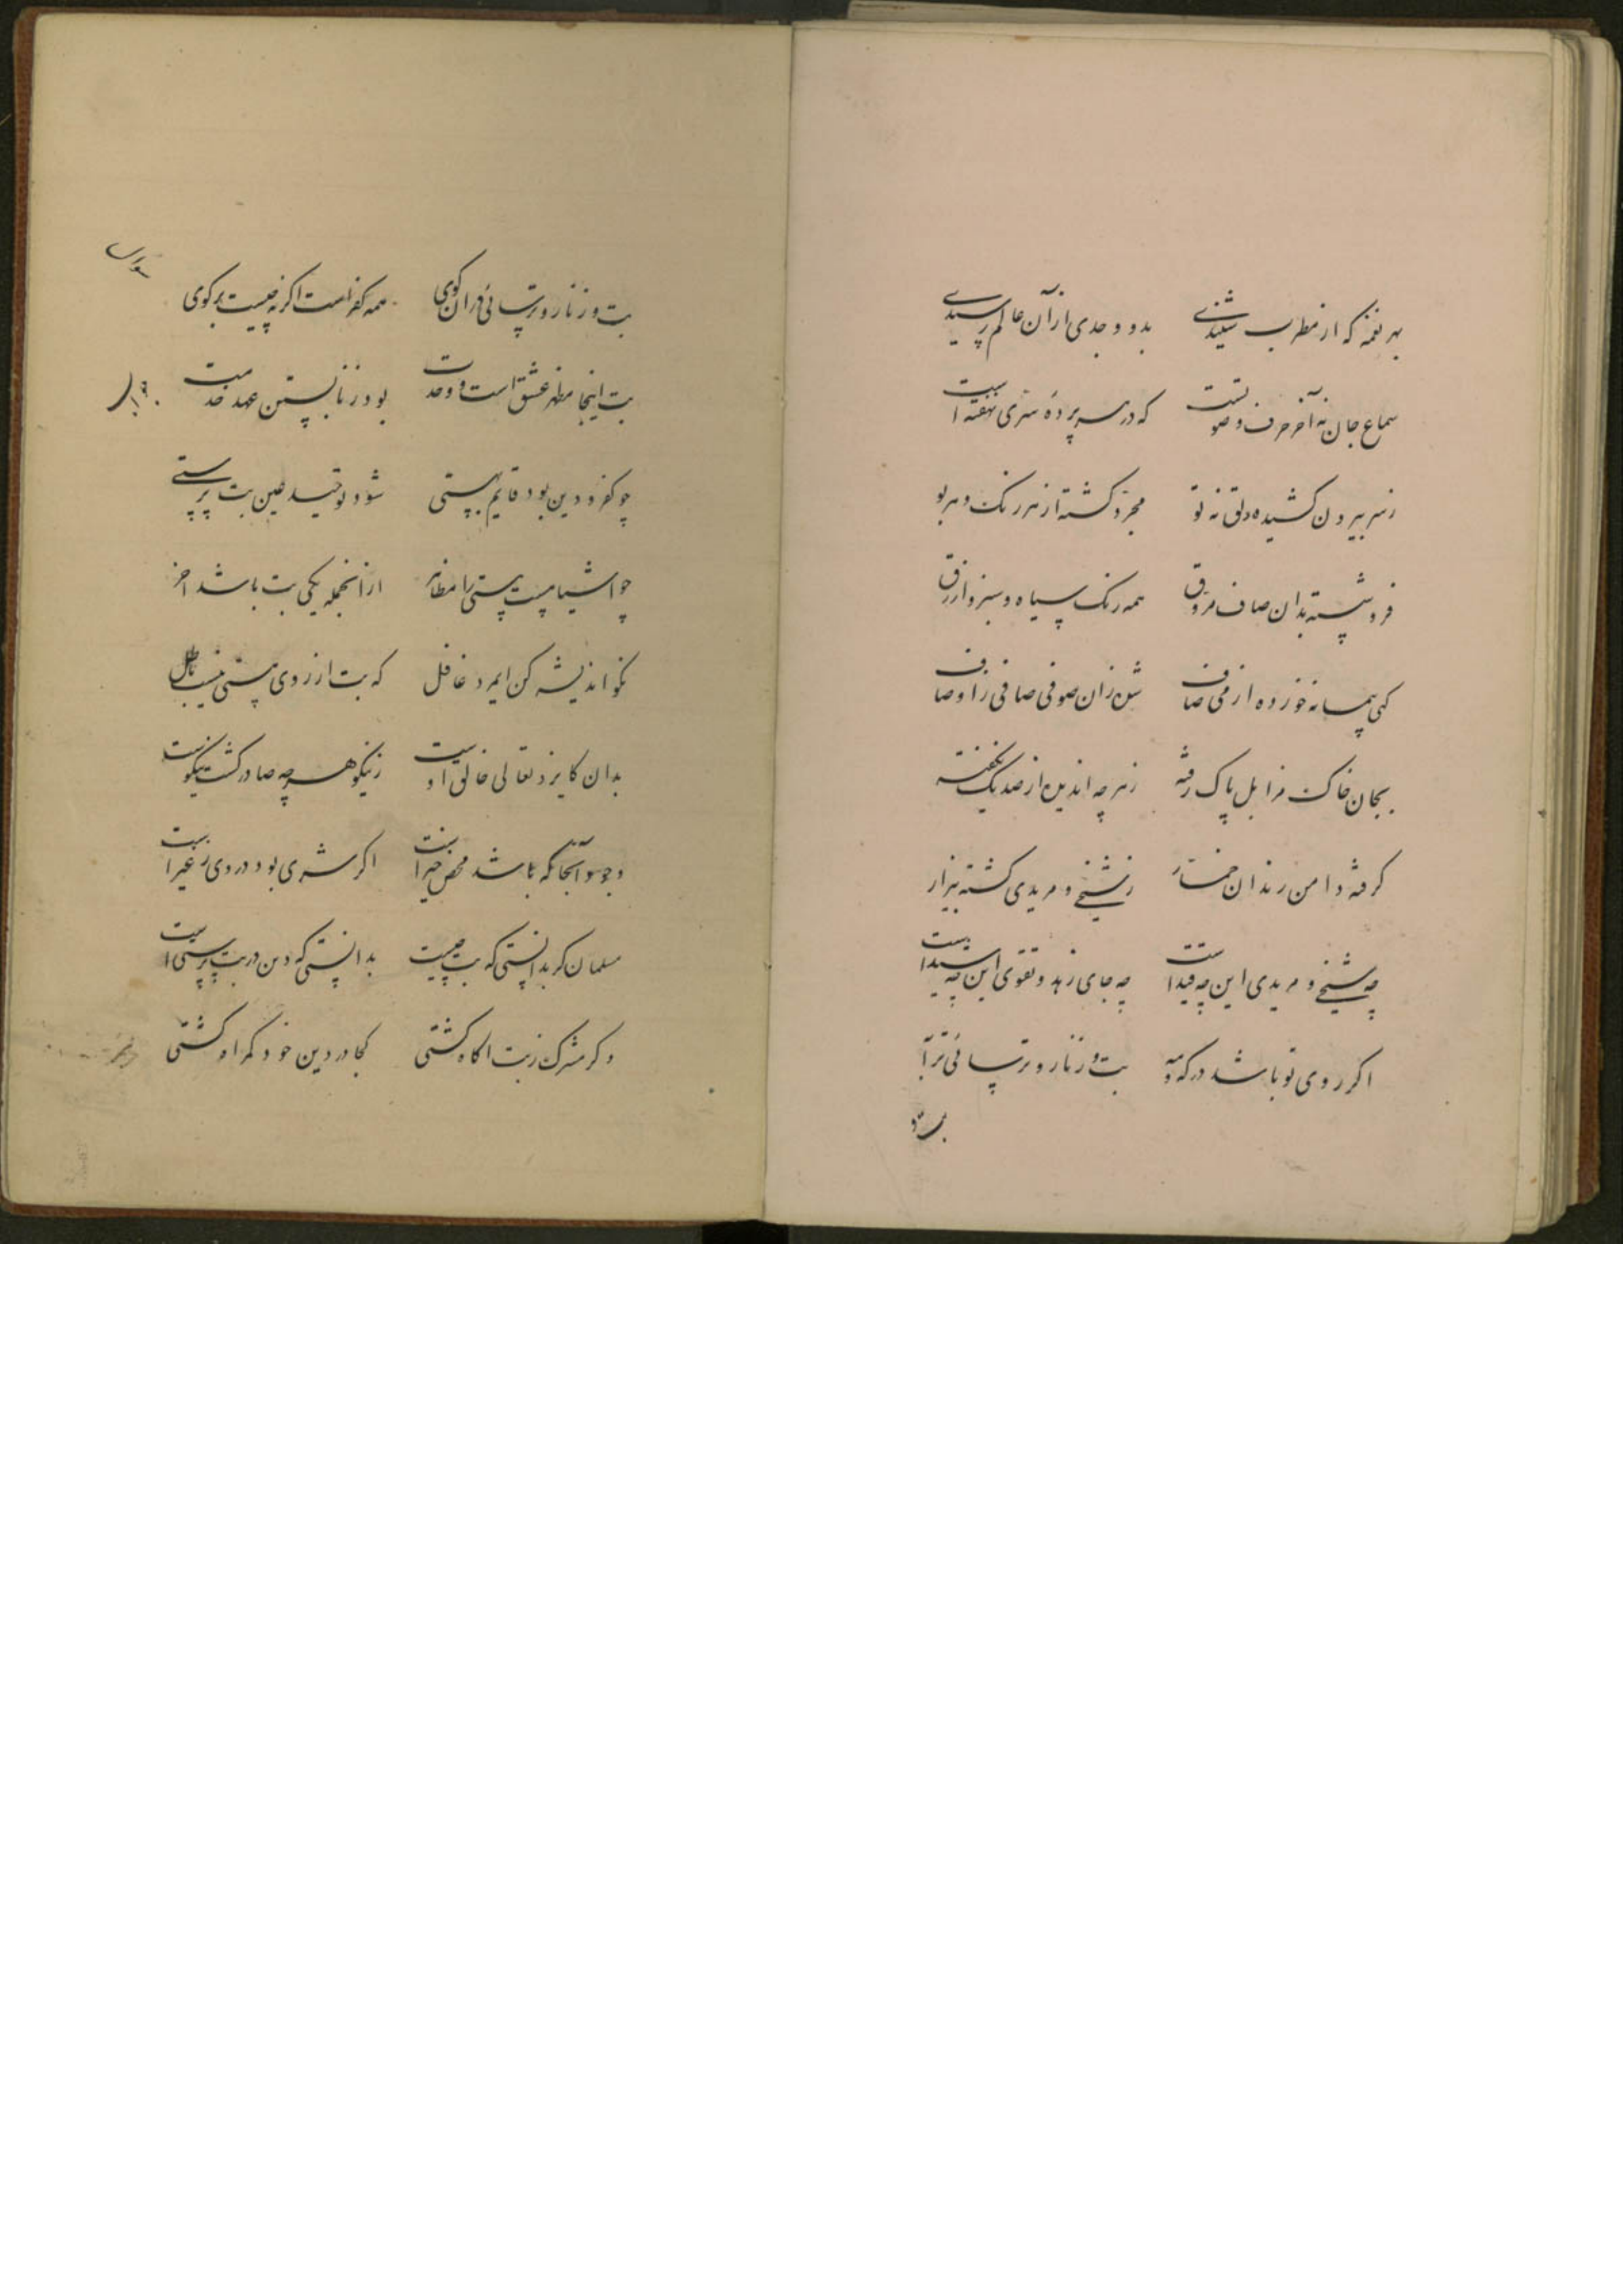 بهر نغمه که از مطرب شنیدی بدو وجدی از آن عالم رسیدی
سماع جان نه آخر حرف و صوتست که در هر پردهٔ سری نهفته است
ز سر بیرون کشیده دلق ده تو مجرد گشته از هر رنگ و هر بو
فرو شسته بدان صاف مروق همه رنگ سیاه و سبز و ازرق
یکی پیمانه خورده از می صاف شده زان صوفی صافی ز اوصاف
بجان خاک مزابل پاک رفته ز هر چه اندیده از صد یک نگفته
گرفته دامن رندان خمار ز شیخی و مریدی گشته بیزار
چه شیخی و مریدی این چه قید است چه جای زهد و تقوی این چه شید است
اگر روی تو باشد در که و مه بت و زنار و ترسائی ترا به
بت و زنار و ترسائی در ان کوی همه کفر است اگر نه چیست بر گوی
سؤال
بت اینجا مظهر عشق است و وحدت بود زنار بستن عهد خدمت
جواب
چو کفر و دین بود قایم بهستی شود توحید عین بت پرستی
چو اشیا هست هستی را مظاهر از انجمله یکی بت باشد آخر
نکو اندیشه کن ایمرد غافل که بت از روی هستی نیست باطل
بدان کایزد تعالی خالق اوست ز نیکو هر چه صادر گشت نیکوست
وجود آنجا که باشد محض خیر است اگر شری بود در وی ز غیر است
مسلمان گر بدانستی که بت چیست بدانستی که دین در بت پرستی است
و گر مشرک ز بت اگاه گشتی کجا در دین خود گمراه گشتی